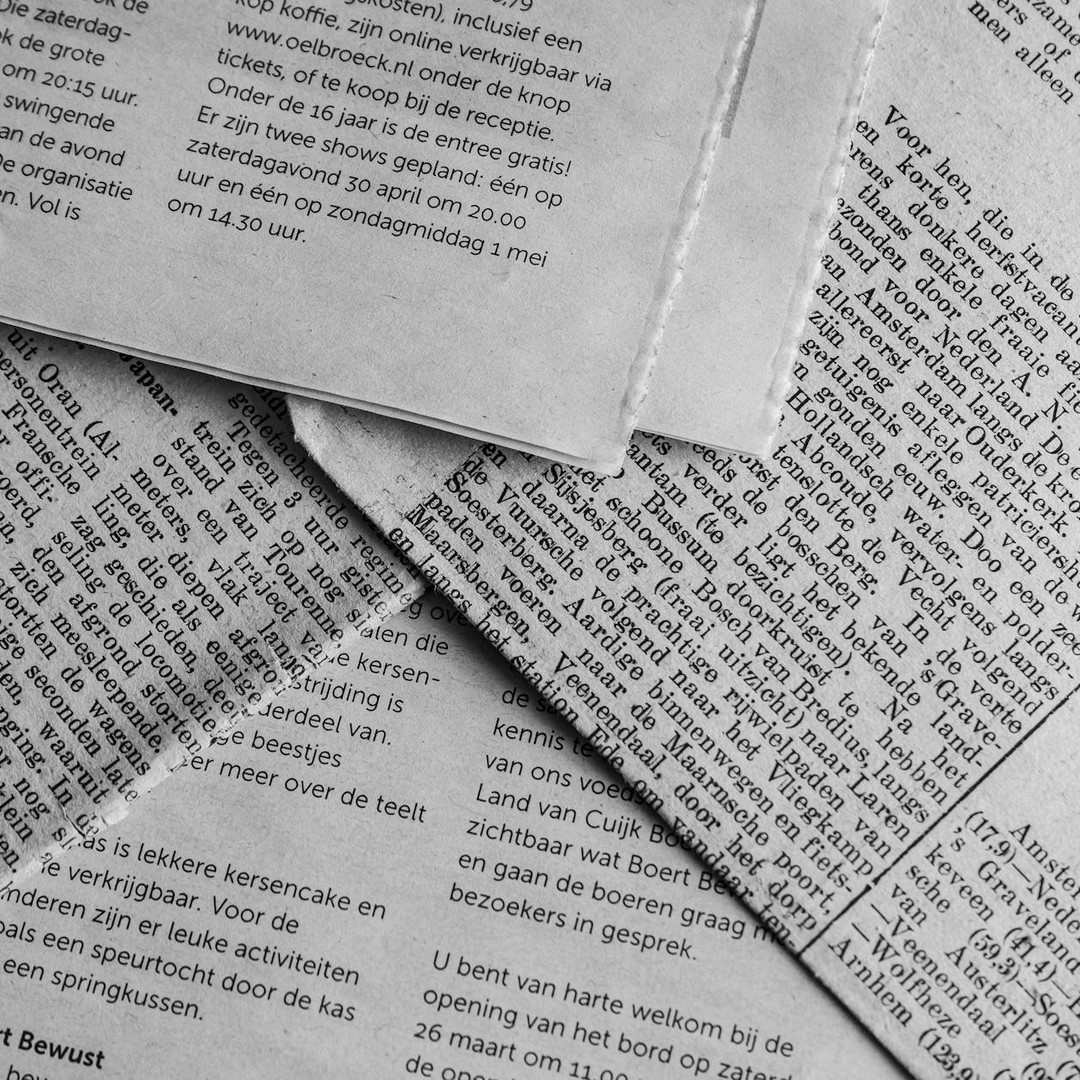 ok de
Die zaterdag-
ok de grote
om 20:15 uur.
swingende
an de avond
De organisatie
en. Vol is
inclusief een
kop koffie, zijn online verkrijgbaar via
www.oelbroeck.nl onder de knop
tickets, of te koop bij de receptie.
Onder de 16 jaar is de entree gratis!
Er zijn twee shows gepland: één op
zaterdagavond 30 april om 20.00
uur en één op zondagmiddag 1 mei
om 14.30 uur.
men alleen
Voor hen, die in de
en korte herfstvacan
rens donkere dagen aa
thans enkele fraaie fie
ezonden door den A. N.
bond voor Nederland De e
an Amsterdam langs de kro
allereerst naar Ouderkerk
zijn nog enkele patriciërsh
getuigenis afleggen van de w
n gouden eeuw. Doo een zee
Hollandsch water- en polder
Abcoude, vervolgens langs
tenslotte de Vecht volgend
den Berg. In de verte
eeds de bosschen van 's Grave-
ets verder ligt het bekende land-
antam (te bezichtigen). Na het
Bussum doorkruist te hebben
het schoone Bosch van Bredius, langs
Sijsjesberg (fraai uitzicht) naar Laren
daarna de prachtige rijwielpaden van
de Vuursche volgend naar het Vliegkamp
Soesterberg. Aardige binnenwegen en fiets-
paden voeren naar de Maarnsche poort,
Maarsbergen, Veenendaal, door het dorp
en langs het station Ede om vandaar ten-
Amster
(17,9)—Nede
's Graveland
keveen (41,4)—
sche (59,3)—Soest
van Austerlitz (7
—Veenendaal (9
—Wolfheze
Arnhem (123,9
Japan-
uit Oran (Al.
personentrein
Fransche
offi-
gedetacheerde regim
Tegen 3 uur giste
trein zich op nog
stand van Tourem
over een traject va
meters, vlak lan
meter diepen afgro
ling, die als eenig
zag geschieden, deel
seling de locomotie
den afgrond storten
zich meesleepende.
stortten de wagens
ge seconden late
den, waaruit
ging. In de
er nog
klein
alen die
kersen-
strijding is
derdeel van.
ge beestjes
er meer over de teelt
as is lekkere kersencake en
verkrijgbaar. Voor de
nderen zijn er leuke activiteiten
oals een speurtocht door de kas
een springkussen.
rt Bewust
de s
kennis te
van ons voeds
Land van Cuijk Bo
zichtbaar wat Boert Be
en gaan de boeren graag m
bezoekers in gesprek.
U bent van harte welkom bij de
opening van het bord op zaterd
26 maart om 11.00
de open